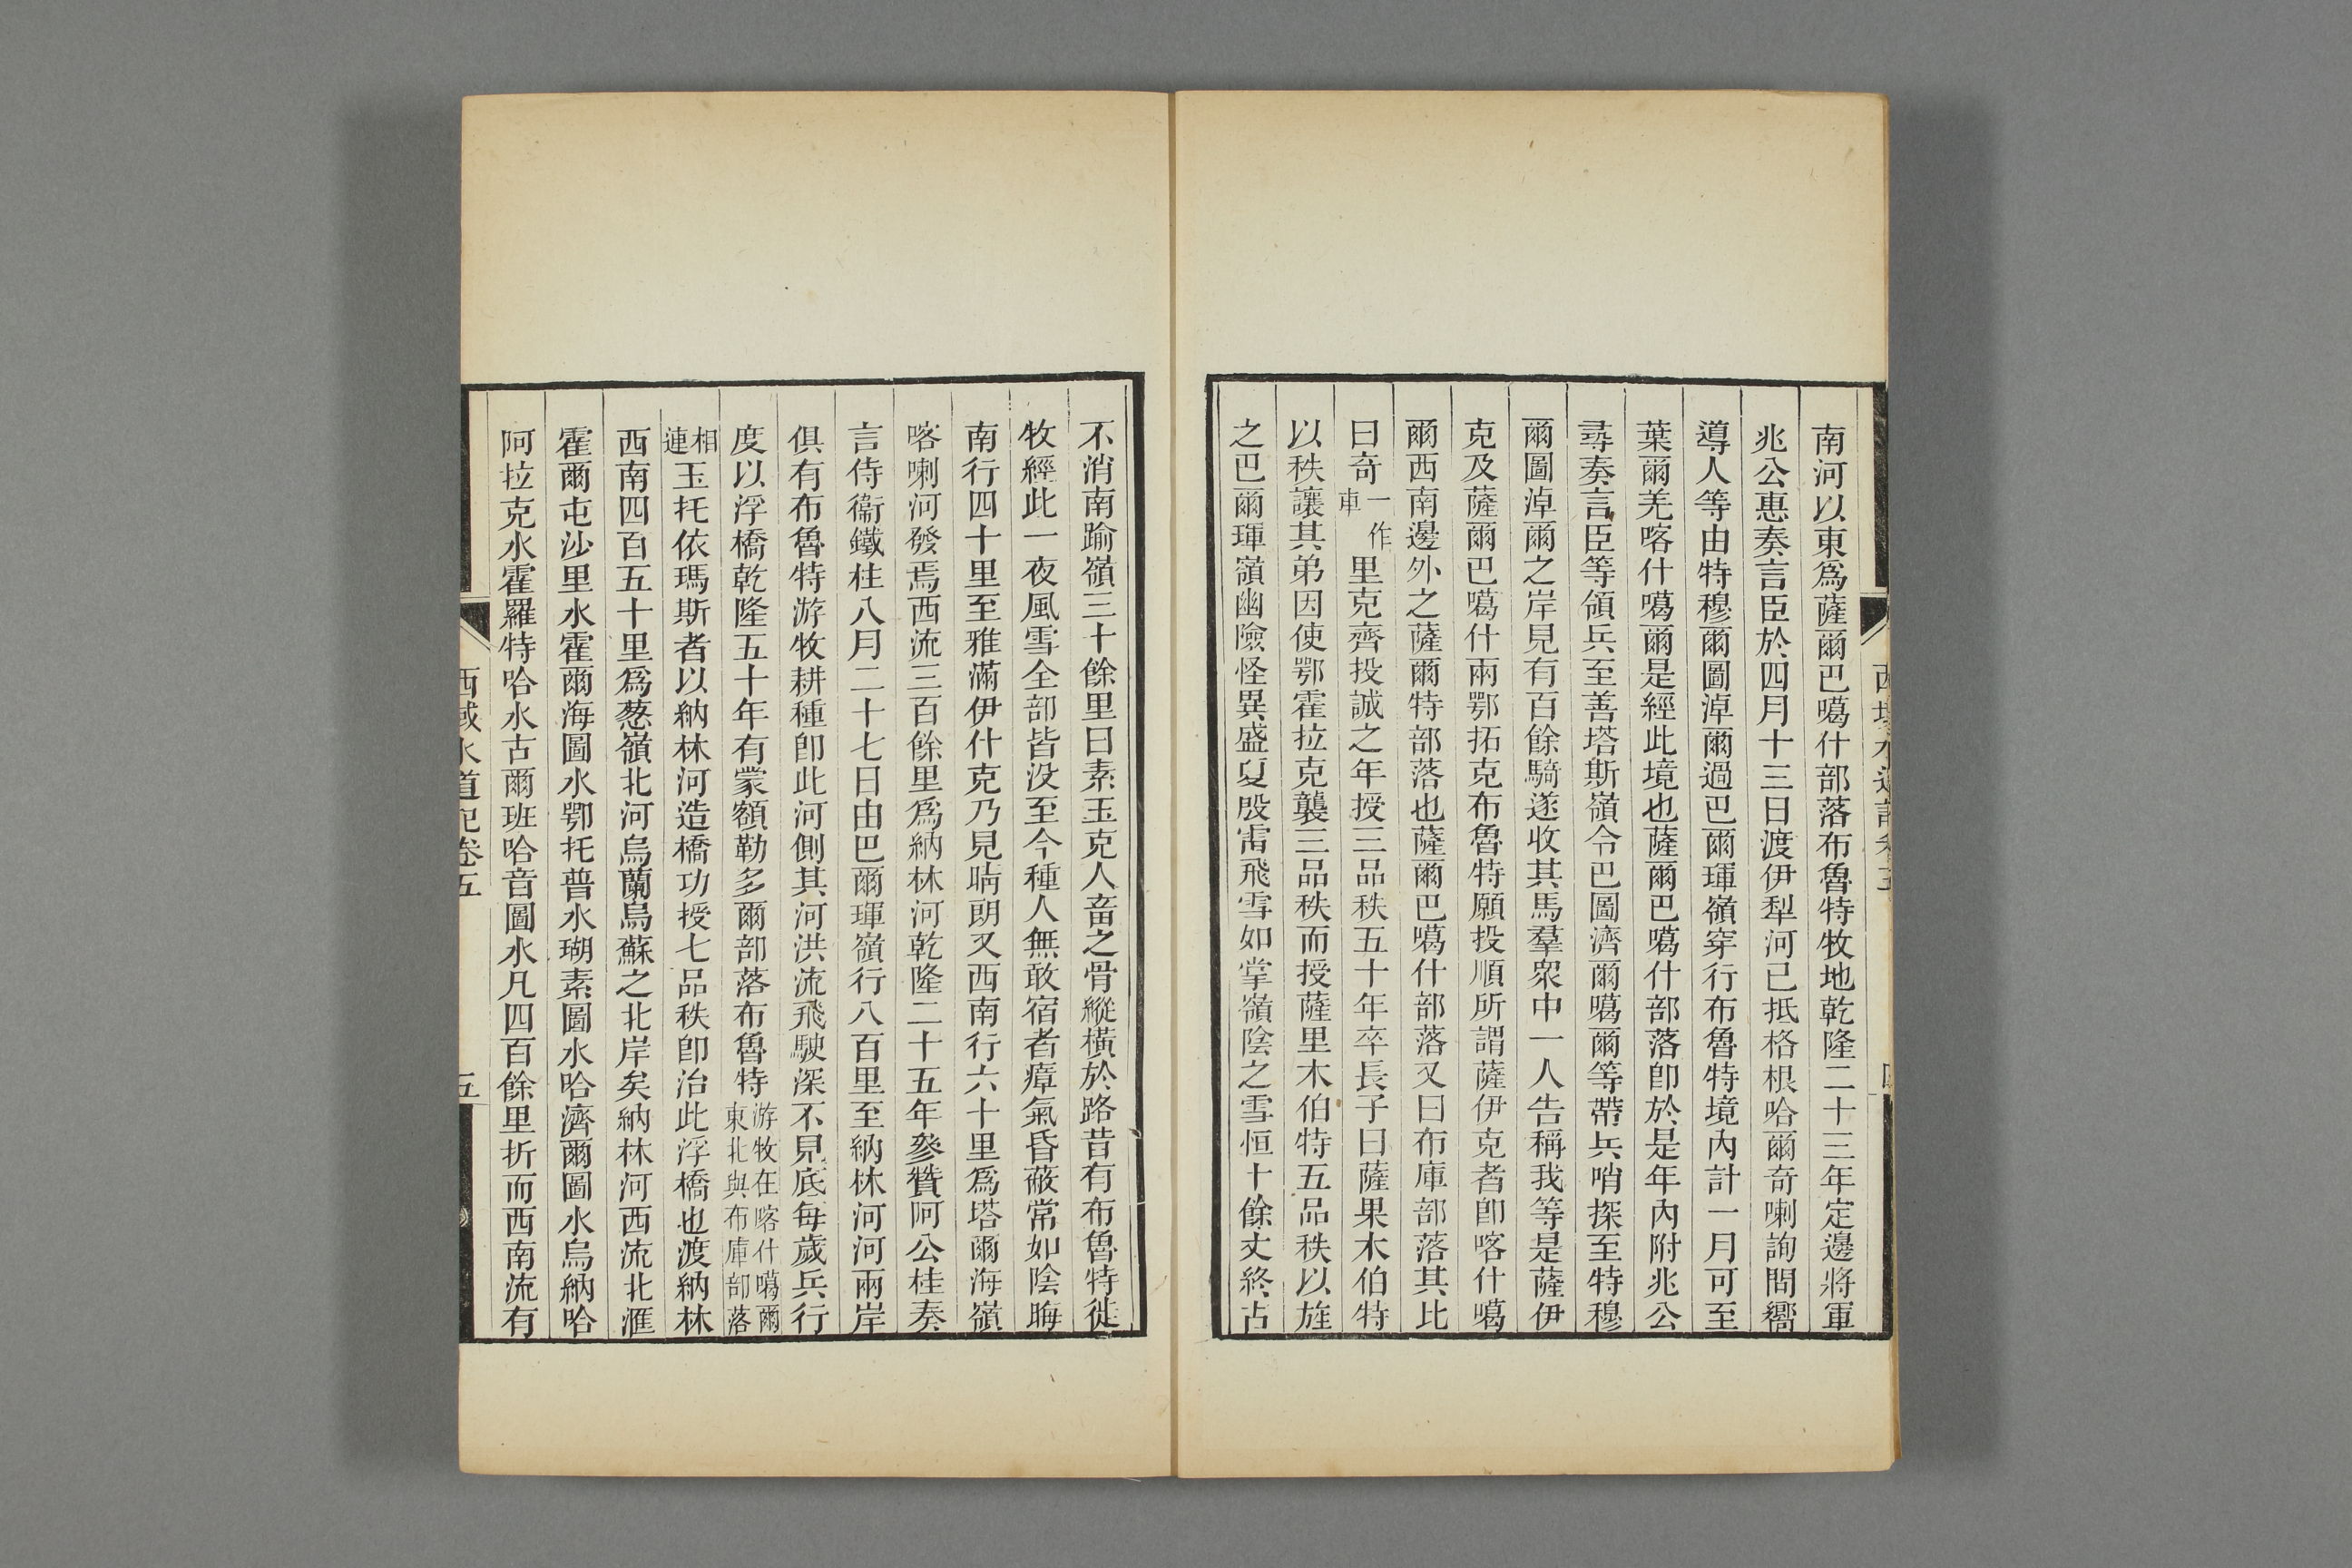 南河以東爲薩爾巴噶什部落布魯特牧地乾隆二十三年定邊將軍
兆公惠奏言臣於四月十三日渡伊犁河已抵格根哈爾奇喇詢問嚮
導人等由特穆爾圖淖爾過巴爾琿嶺穿行布魯特境內計一月可至
葉爾羌喀什噶爾是經此境也薩爾巴噶什部落卽於是年內附兆公
尋奏言臣等領兵至善塔斯嶺令巴圖濟爾噶爾等帶兵哨探至特穆
爾圖淖爾之岸見有百餘騎遂收其馬羣衆中一人告稱我等是薩伊
克及薩爾巴噶什兩鄂拓克布魯特願投順所謂薩伊克者卽喀什噶
爾西南邊外之薩爾特部落也薩爾巴噶什部落又曰布庫部落其比
曰奇一作車里克齊投誠之年授三品秩五十年卒長子曰薩果木伯特
以秩讓其弟因使鄂霍拉克襲三品秩而授薩里木伯特五品秩以旌
之巴爾琿嶺幽險怪異盛夏殷雷飛雪如掌嶺陰之雪恒十餘丈終古
不消南踰嶺三十餘里曰素玉克人畜之骨縱橫於路昔有布魯特徙
牧經此一夜風雪全部皆没至今種人無敢宿者瘴氣昏蔽常如陰晦
南行四十里至雅滿伊什克乃見晴朗又西南行六十里爲塔爾海嶺
喀喇河發焉西流三百餘里爲納林河乾隆二十五年參贊阿公桂奏
言侍衞鐵柱八月二十七日由巴爾琿嶺行八百里至納林河河兩岸
俱有布魯特游牧耕種卽此河側其河洪流飛駛深不見底每歲兵行
度以浮橋乾隆五十年有蒙額勒多爾部落布魯特游牧在喀什噶爾東北與布庫部落
相連玉托依瑪斯者以納林河造橋功授七品秩卽治此浮橋也渡納林
西南四百五十里爲葱嶺北河烏蘭烏蘇之北岸矣納林河西流北滙
霍爾屯沙里水霍爾海圖水鄂托普水瑚素圖水哈濟爾圖水烏納哈
阿拉克水霍羅特哈水古爾班哈音圖水凡四百餘里折而西南流有
西域水道記卷五
五